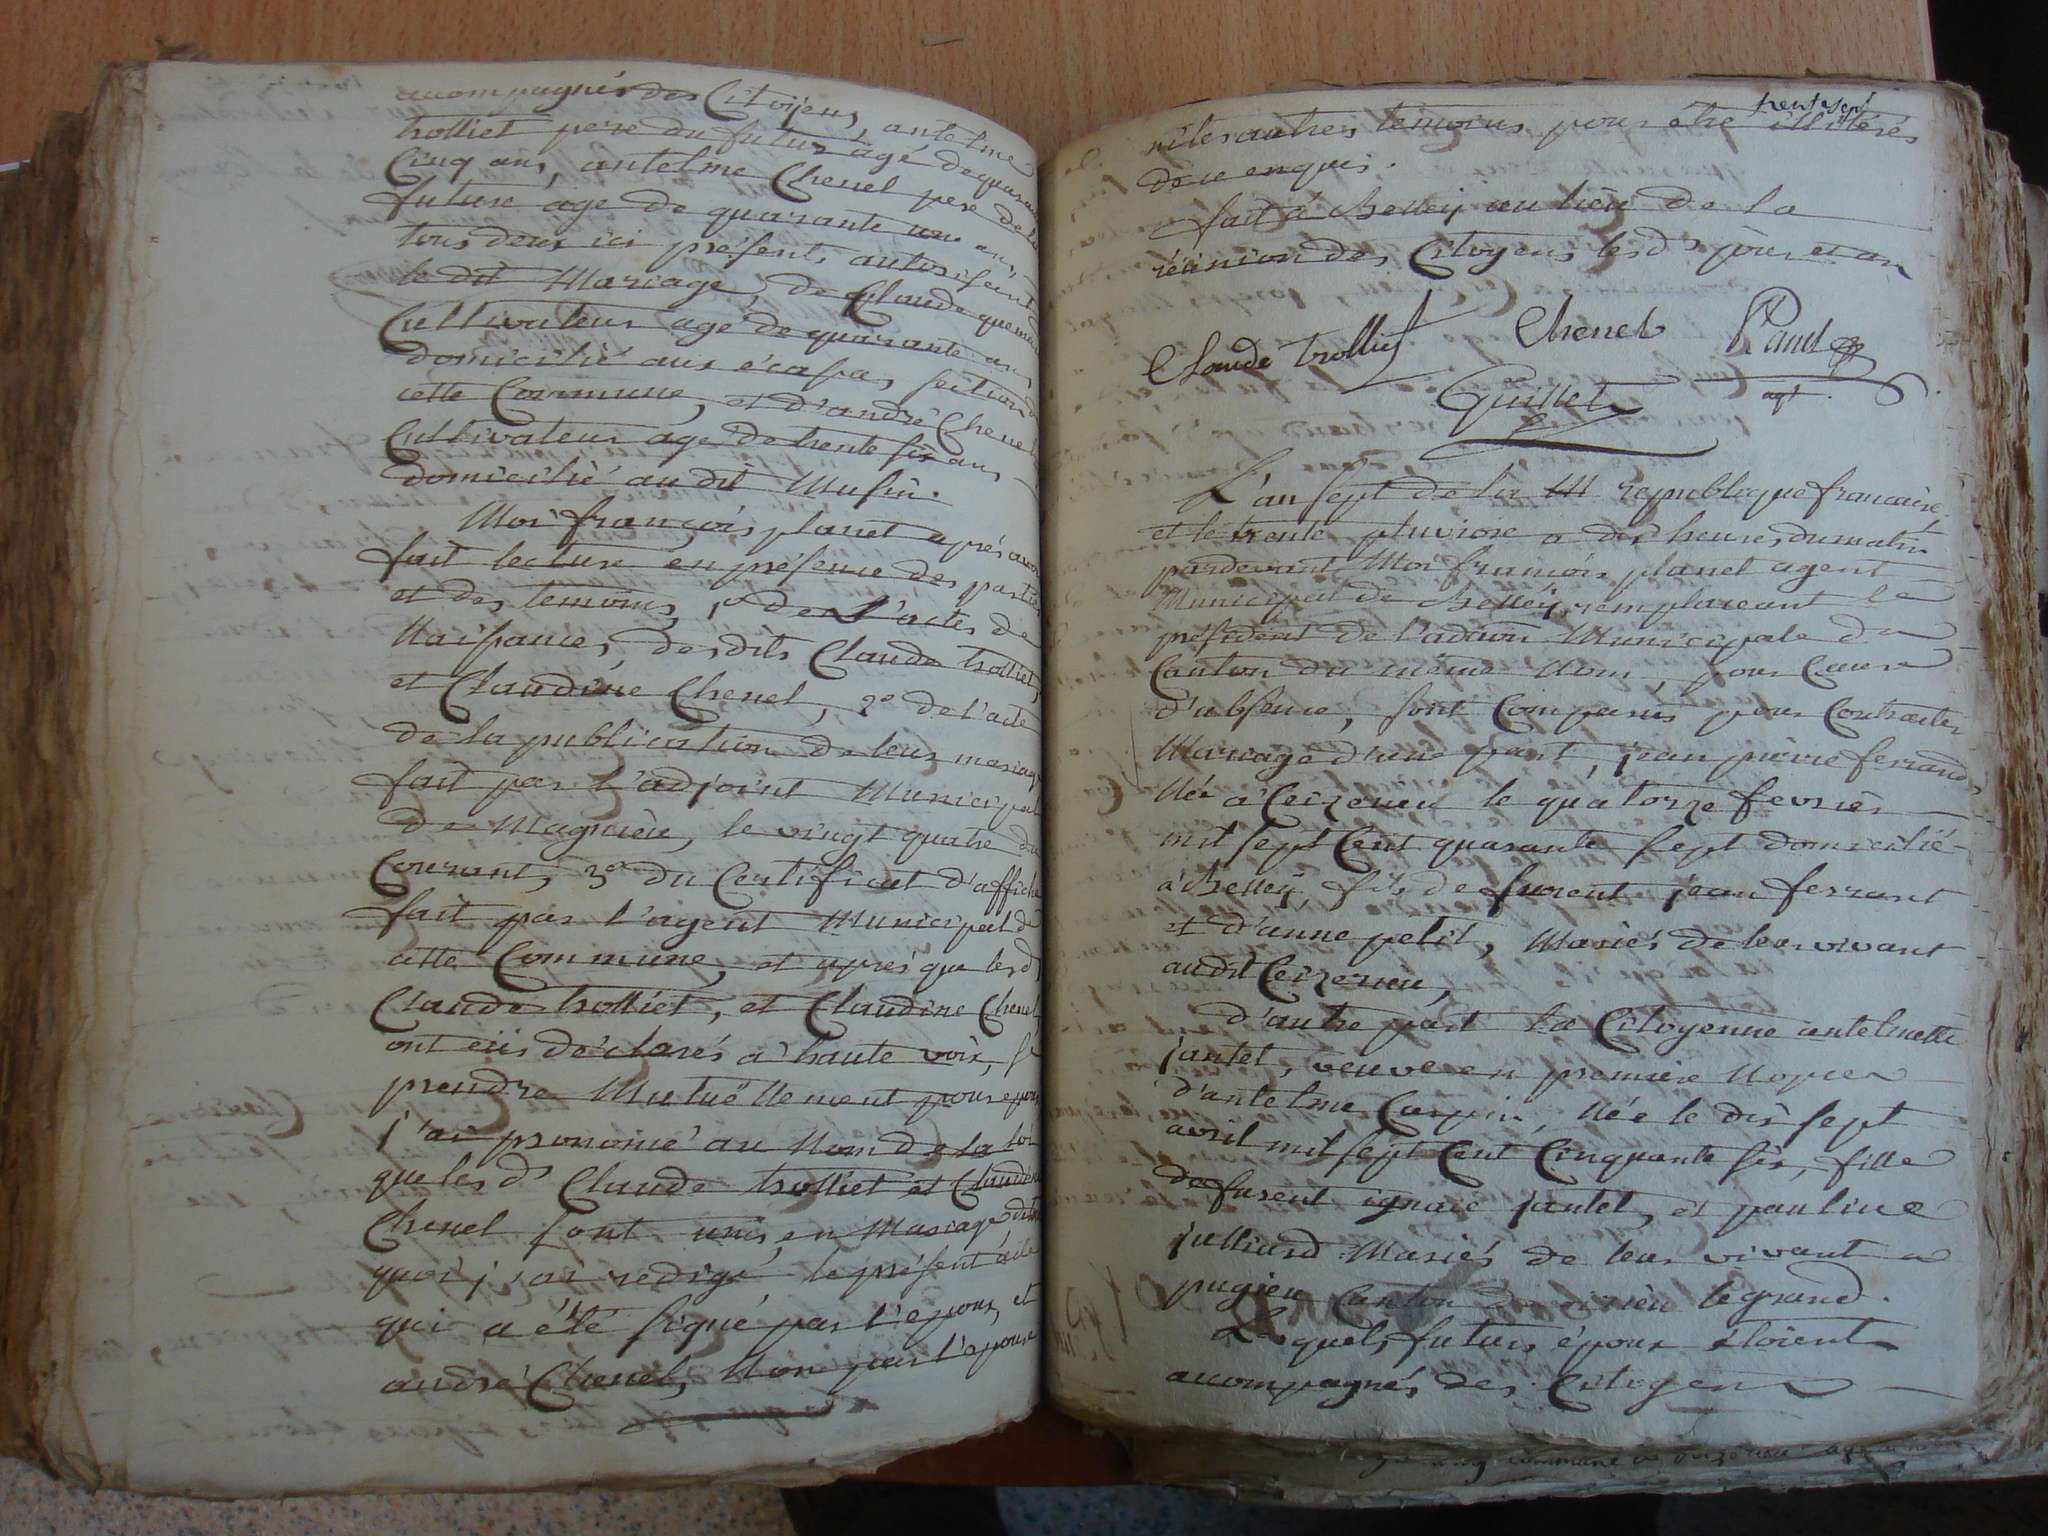 accompagnés des Citoyens, antelme
trolliet pere du futur agé de quarante
Cinq ans, antelme Chenel pere de la
future agé de quarante un ans,
tous deux ici présents autorisent
le dit Mariage, de Claude
Cultivateur agé de quarante ans
domicilié aux écapas, section de
cette Commune, et d'andré Chenel
Cultivateur agé de trente six ans
domicilié au dit Musin.
Moi françois planet après avoir
fait lecture en présence des parties
et des temoins, 1° de l'actes de
Naissances, desdits Claude trolliet,
et Claudine Chenel, 2° de l'acte
de la publication de leur mariage
fait par l'adjoint Municipal
de Magnieu, le vingt quatre du
Courant, 3° du Certificat d'affiche
fait par l'agent Municipal de
cette Commune, et après que lesd
Claude trolliet, et Claudine Chenel,
ont eüs déclarés a haute voix, se
prendre Mutuëllement pour epoux
j'ai prononcé au Nom de la loi
que les d^s Claude trolliet et Claudine
Chenel sont unis, en Mariage
quoi j'ai redigé le présent acte
qui a été signé par l'epoux, et
andré Chenel, Non par l'epouse
trente sept
ni les autres témoins pour etre illitérés
de ce enquis.
fait à Belleÿ au lieu de la
réunion des Citoyens les d^s jour et an
Claude trolliet Chenel
Guillet agt.
L'an sept de la republique francaise,
et le trente pluviose a dix heures du matin
pardevant Moi francois planet agent
Municipal de Belleÿ remplaceant le
président de l'adion Municipale du
Canton du même Nom, pour Cause
d'absence, sont Comparus pour Contracter
Mariage d'une part, jean pierre ferrand
Né a Ceizerieu le quatorze fevrier
mil sept Cent quarante sept domicilié
à Belleÿ, fils de furent jean ferrant
et d'anne petit, Mariés de leur vivant
audit Ceizerieu,
d'autre part La Citoyenne antelmette
jantet, veuve en premiere Noces
d'antelme Carpin, Née le dix sept
avril mil sept Cent Cinquante six, fille
de furent ignace jantet, et pauline
julliard Mariés de leur vivant a
pugieu Canton de virieu le grand.
Lesquels futurs époux étoient
accompagnés des Citoyens